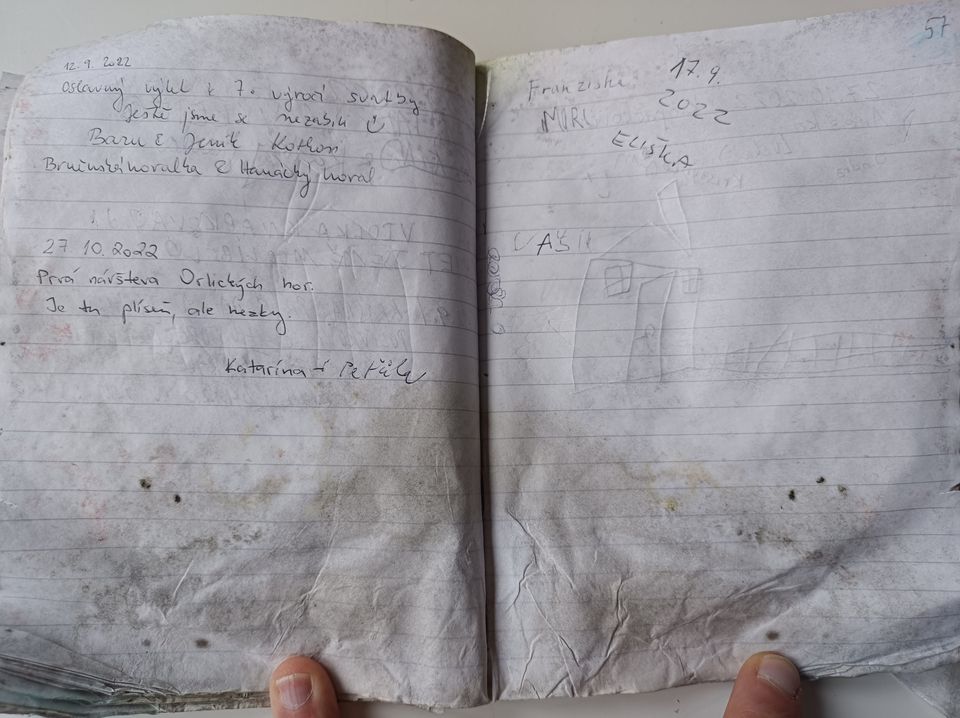 12. 9. 2022
Oslavný výlet k 7. výročí svatby
Ještě jsme se nezabili
Baru & Jeník Kothon
Brněnská horalka & Hanácký horal
27. 10. 2022
Prvá návšteva Orlických hor.
Je tu plíseň, ale hezky.
Katarína +
57
17. 9.
2022
Franziska
MIRI
ELIŠKA